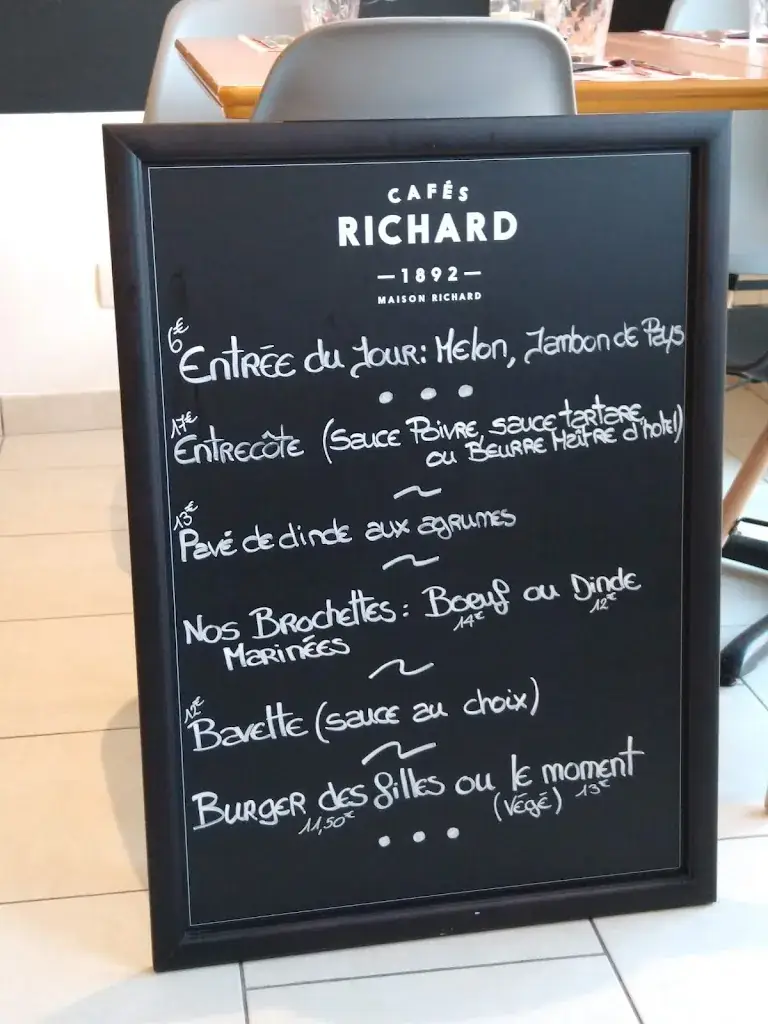 CAFÉS
RICHARD
—1892—
MAISON RICHARD
6€
Entrée du Jour: Melon, Jambon de Pays
17€
Entrecôte (Sauce Poivre, sauce tartare,
ou Beurre Maître d'hotel)
13€
Pavé de dinde aux agrumes
Nos Brochettes: Boeuf ou Dinde
14€ 12€
Marinées
12€
Bavette (sauce au choix)
Burger des filles ou le moment
11,50€ (végé) 13€